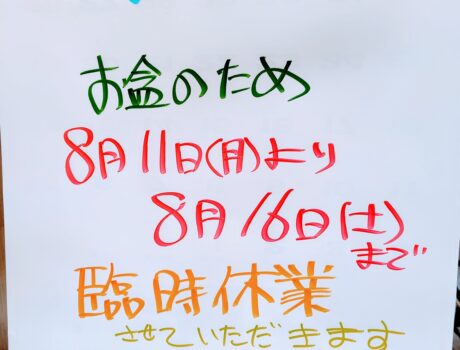 お盆のため
8月11日(月)より
8月16日(土)
まで
臨時休業
させていただきます